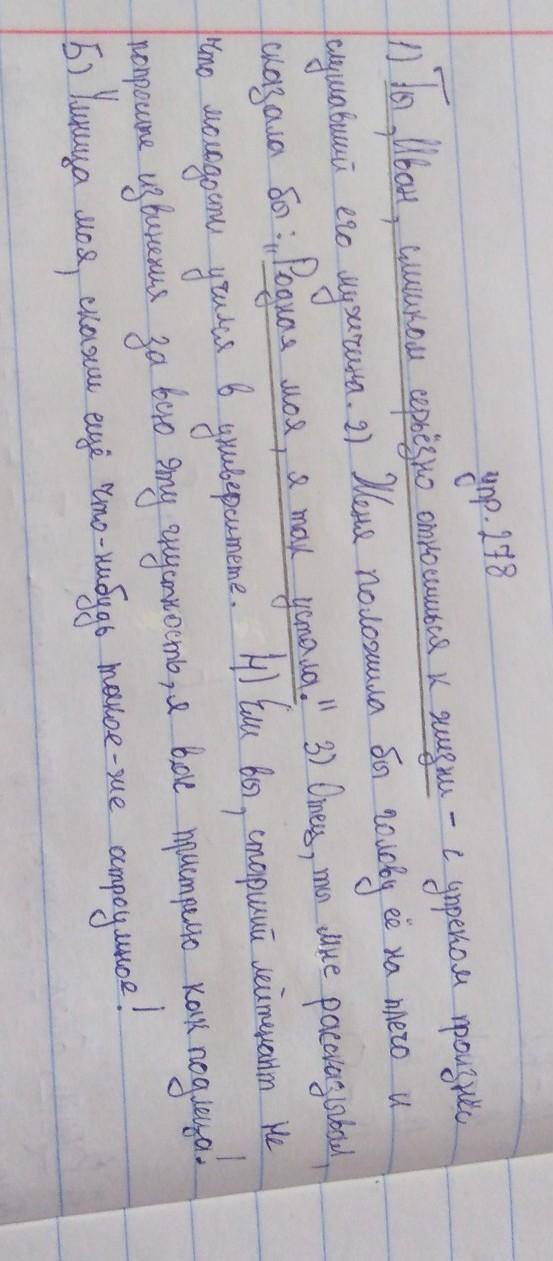 упр. 278
1) Ты, Иван, слишком серьёзно относишься к жизни – с упреком произнёс
слушавший его мужчина. 2) Женя положила бы голову ей на плечо и
сказала бы: „Родная моя, я так устала." 3) Отец, ты мне рассказывал,
что молодости учился в университете. 4) Если вы, старший лейтенант не
попросите извинения за всю эту гнусность, я вас пристрелю как подлеца!
5) Умница моя, скажи ещё что-нибудь такое-же остроумное!